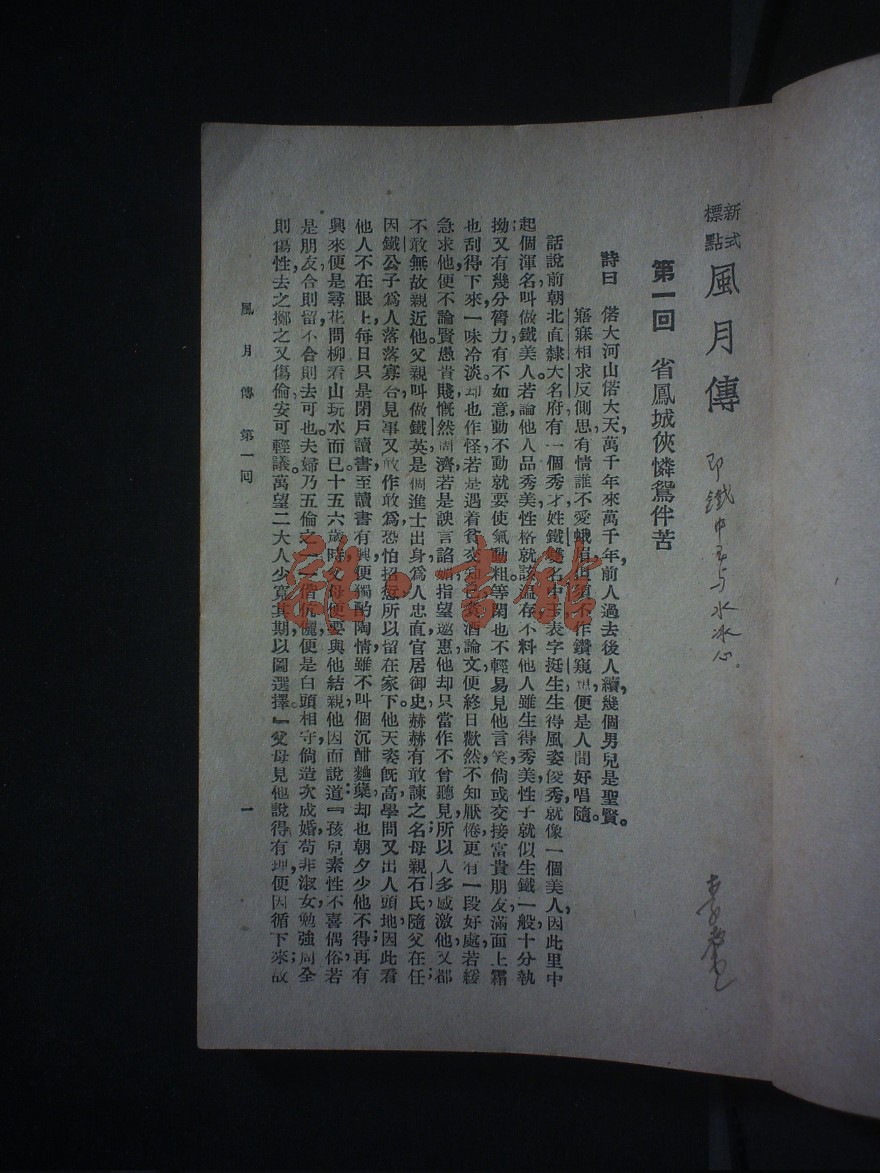 新式
標點
風月傳
即鐵中玉与水冰心
第一回 省鳳城俠憐鴛伴苦
詩曰 偌大河山偌大天,萬千年來萬千年,前人過去後人續,幾個男兒是聖賢。
寤寐相求反側思,有情誰不愛蛾眉,但須不作鑽窺,便是人間好唱隨。
話說前朝北直隸大名府有一個秀才,姓鐵雙名中玉,表字挺生,生得風姿俊秀,就像一個美人,因此里中
起個渾名叫做鐵美人。若論他人品秀美,性格就該溫存,不料他人雖生得秀美,性子就似生鐵一般,十分執
拗;又有幾分膂力,有不如意,動不動就要使氣動粗。等閑也不輕易見他言笑,倘或交接富貴朋友,滿面上霜
也刮得下來,一味冷淡。却也作怪,若是遇着貧交知己,煮酒論文,便終日歡然,不知厭倦,更有一段好處,若緩
急求他,便不論賢愚貴賤,慨然周濟;若是諛言諂媚,指望邀惠,他却只當作不曾聽見,所以人多感激他,又都
不敢無故親近他。父親叫做鐵英,是個進士出身,為人忠直,官居御史,赫赫有敢諫之名;母親石氏,隨父在任;
因鐵公子為人落落寡合,見事又敢作敢為,恐怕招愆,所以留在家下。他天姿既高,學問又出人頭地,因此看
他人不在眼上,每日只是閉戶讀書,至讀書有興,便獨酌陶情,雖不叫個沉酣麯蘗,却也朝夕少他不得;再有
興來,便是尋花問柳,看山玩水而已。十五六歲時,父母便要與他結親,他因而說道:『孩兒素性不喜偶俗,若
是朋友,合則留,不合則去可也。夫婦乃五倫之一,一諧伉儷,便是白頭相守,倘造次成婚,苟非淑女,勉強周全
則傷性,去之擲之又傷倫,安可輕議。萬望二大人少寬其期,以圖選擇。』父母見他說得有理,便因循下來;故
風月傳 第一回 一
雜·書館